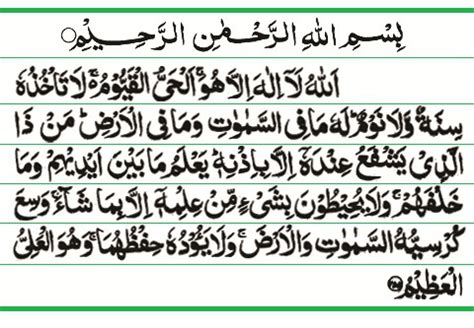 بِسْمِ اللهِ الرَّحْمٰنِ الرَّحِيْمِ
اَللهُ لَآ اِلٰهَ اِلَّا هُوَ ۚ اَلْحَىُّ الْقَيُّوْمُ ۚ لَا تَاْخُذُهٗ
سِنَةٌ وَّلَا نَوْمٌ ؕ لَهٗ مَا فِى السَّمٰوٰتِ وَمَا فِى الْاَرْضِ ؕ مَنْ ذَا
الَّذِىْ يَشْفَعُ عِنْدَهٗٓ اِلَّا بِاِذْنِهٖ ؕ يَعْلَمُ مَا بَيْنَ اَيْدِيْهِمْ وَمَا
خَلْفَهُمْ ۚ وَلَا يُحِيْطُوْنَ بِشَىْءٍ مِّنْ عِلْمِهٖٓ اِلَّا بِمَا شَآءَ ۚ وَسِعَ
كُرْسِيُّهُ السَّمٰوٰتِ وَالْاَرْضَ ۚ وَلَا يَـُٔوْدُهٗ حِفْظُهُمَا ۚ وَهُوَ الْعَلِىُّ
الْعَظِيْمُ